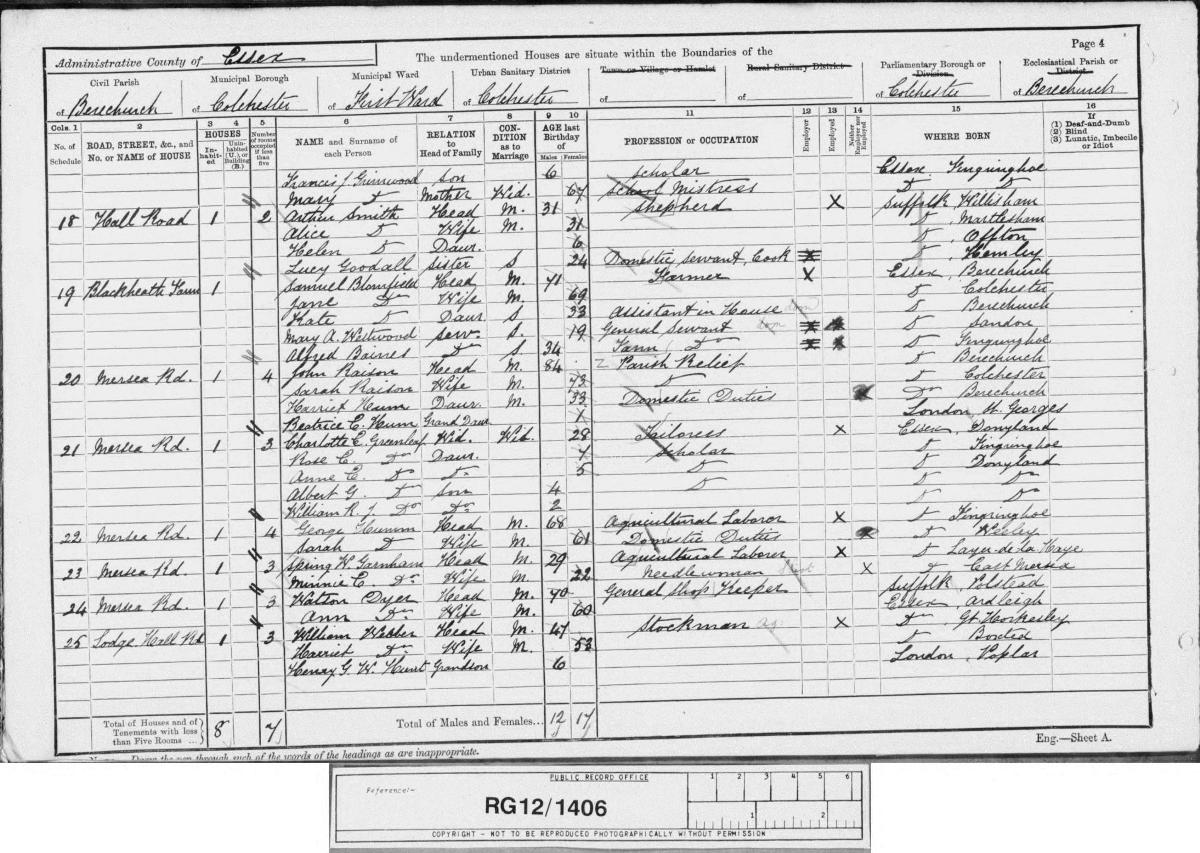 Page 4
Administrative County of Essex
The undermentioned Houses are situate within the Boundaries of the
Civil Parish of Berechurch
Municipal Borough of Colchester
Municipal Ward of First Ward
Urban Sanitary District of Colchester
Town or Village or Hamlet of
Rural Sanitary District of
Parliamentary Borough or Division of Colchester
Ecclesiastical Parish or District of Berechurch
Cols. 1 2 3 4 5 6 7 8 9 10 11 12 13 14 15 16
No. of Schedule
ROAD, STREET, &c., and No. or NAME of HOUSE
HOUSES
Inhabited
Uninhabited (U.), or Building (B.)
Number of rooms occupied if less than five
NAME and Surname of each Person
RELATION to Head of Family
CONDITION as to Marriage
AGE last Birthday of
Males Females
PROFESSION or OCCUPATION
Employer
Employed
Neither Employer nor Employed
WHERE BORN
If
(1) Deaf-and-Dumb
(2) Blind
(3) Lunatic, Imbecile or Idiot
Francis J. Grimwood son 6 scholar Essex Fingringhoe
Mary Do Mother Wid. 67 School Mistress Do Do
18 Hall Road 1 2 Arthur Smith Head M. 31 Shepherd X Suffolk, Willisham
Alice Do Wife M. 31 Do, Martlesham
Helen Do Daur. 6 Do, Offton
Lucy Goodall Sister S 24 Domestic Servant, Cook Do, Hemley
19 Blackheath Farm 1 Samuel Blomfield Head M. 71 Farmer X Essex, Berechurch
Jane Do Wife M. 69 Do Colchester
Kate Do Daur S 33 Assistant in House dom Do Berechurch
Mary A. Westwood Serv. S. 19 General Servant dom Do Sandon
Alfred Baines Do S 34 Farm Do Do Fingringhoe
20 Mersea Rd. 1 4 John Raison Head M. 84 Parish Relief Do Berechurch
Sarah Raison Wife M. 73 Do Do Colchester
Harriet Hum Daur. M. 33 Domestic Duties Do Berechurch
Beatrice E. Hum Grand Daur 1 London St. Georges
21 Mersea Rd. 1 3 Charlotte E. Greenleaf Wid. Wid. 28 Tailoress X Essex, Donyland
Rose C. Do Daur. 7 Scholar Do Fingringhoe
Anne E. Do Do 5 Do Do Donyland
Albert G. Do Son 4 Do Do Do
William R. J. Do Do 2 Do Do
22 Mersea Rd. 1 4 George Humm Head M. 68 Agricultural Laboror X Do Fingringhoe
Sarah Do Wife M. 61 Domestic Duties Do Weeley
23 Mersea Rd. 1 3 Spring W. Garnham Head M. 29 Agricultural Laborer X Do Layer-de-la-Haye
Minnie E. Do Wife M. 22 Needlewoman X Do East Mersea
24 Mersea Rd. 1 3 Watson Dyer Head M. 70 General Shop Keeper Suffolk, Polstead
Ann Do Wife M. 60 Essex, Ardleigh
25 Lodge Hall Rd 1 3 William Webber Head M. 47 Stockman Ag X Do Gt. Horkesley
Harriet Do Wife M. 53 Do Boxted
Henry G. W. Hunt Grandson 6 London, Poplar
Total of Houses and of Tenements with less than Five Rooms ... 8 7
Total of Males and Females... 12 17
Eng.—Sheet A.
Note.—Draw the pen through such of the words of the headings as are inappropriate.
PUBLIC RECORD OFFICE
Reference:-
RG12/1406
1 2 3 4 5 6
1 2
COPYRIGHT - NOT TO BE REPRODUCED PHOTOGRAPHICALLY WITHOUT PERMISSION